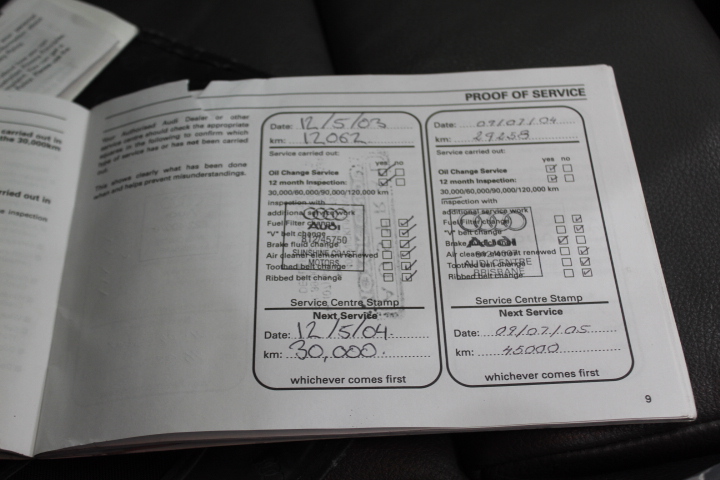 PROOF OF SERVICE
Your Authorised Audi Dealer or other
service centre should check the appropriate
squares in the following to confirm which
type of service has or has not been carried
out.
This shows clearly what has been done
when and helps prevent misunderstandings.
carried out in
the 30,000km
rried out in
inspection
Date: 12/5/03
km: 12062
Service carried out:
yes no
Oil Change Service
12 month Inspection:
30,000/60,000/90,000/120,000 km
inspection with
additional service work
Fuel Filter change
"V" belt change
Brake fluid change
Air cleaner element renewed
Toothed belt change
Ribbed belt change
Audi
SUNSHINE COAST
MOTORS
Service Centre Stamp
Next Service
Date: 12/5/04
km: 30,000
whichever comes first
Date: 09/07/04
km: 29258
Service carried out:
yes no
Oil Change Service
12 month Inspection:
30,000/60,000/90,000/120,000 km
inspection with
additional service work
Fuel Filter change
"V" belt change
Brake fluid change
Air cleaner element renewed
Toothed belt change
Ribbed belt change
Audi
AUDI CENTRE
BRISBANE
Service Centre Stamp
Next Service
Date: 09/07/05
km: 45000
whichever comes first
9